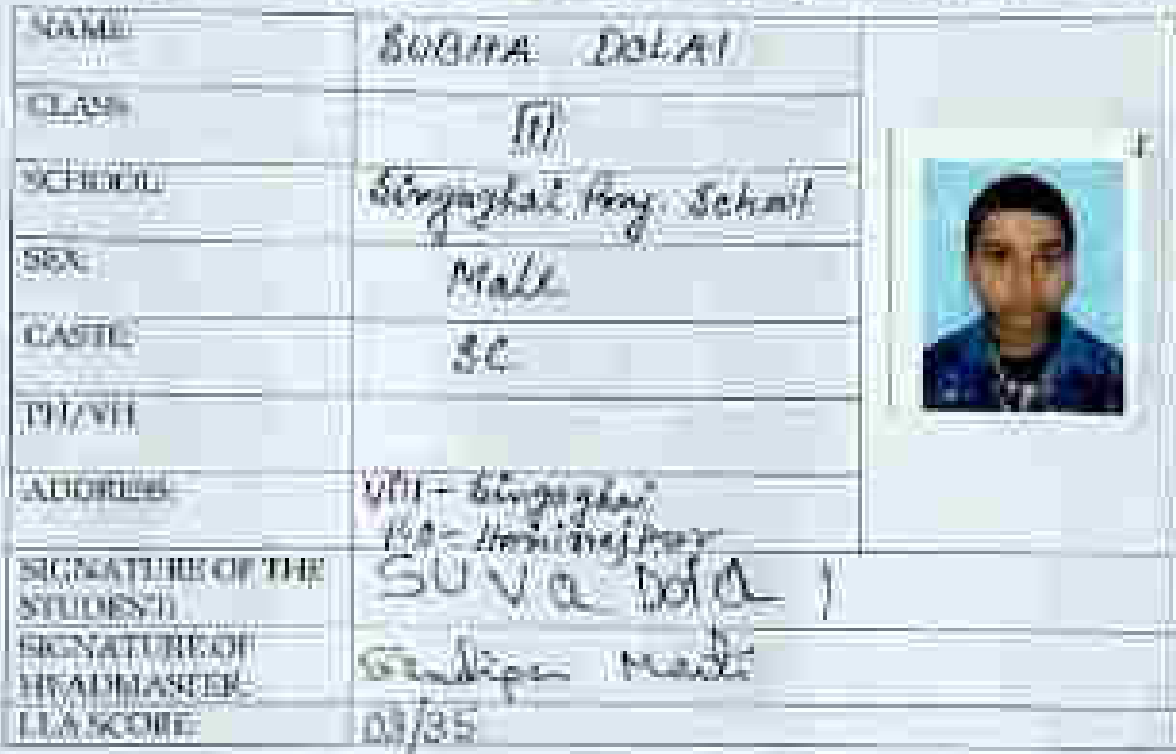 NAME: SUBHA DOLAI
CLASS: III
SCHOOL: Singaghai Pry. School
SEX: Male
CASTE: SC
PH/VH
ADDRESS: Vill - Singaghai
PO -
SIGNATURE OF THE STUDENT: SUVa Dola i
SIGNATURE OF HEADMASTER: Sandipan Maiti
LLA SCORE: 03/35